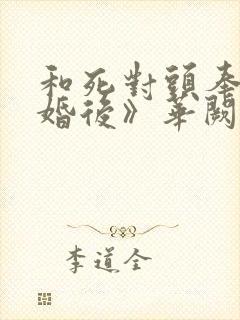 和死對頭奉
婚後》華闕
李道全